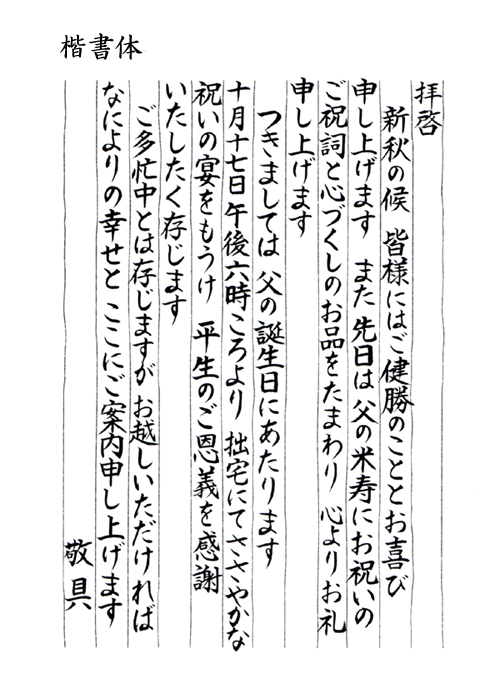 楷書体
拝啓
新秋の候　皆様にはご健勝のこととお喜び
申し上げます　また先日は父の米寿にお祝いの
ご祝詞と心づくしのお品をたまわり　心よりお礼
申し上げます
つきましては　父の誕生日にあたります
十月十七日午後六時ころより　拙宅にてささやかな
祝いの宴をもうけ　平生のご恩義を感謝
いたしたく存じます
ご多忙中とは存じますが　お越しいただければ
なによりの幸せと　ここにご案内申し上げます
敬具